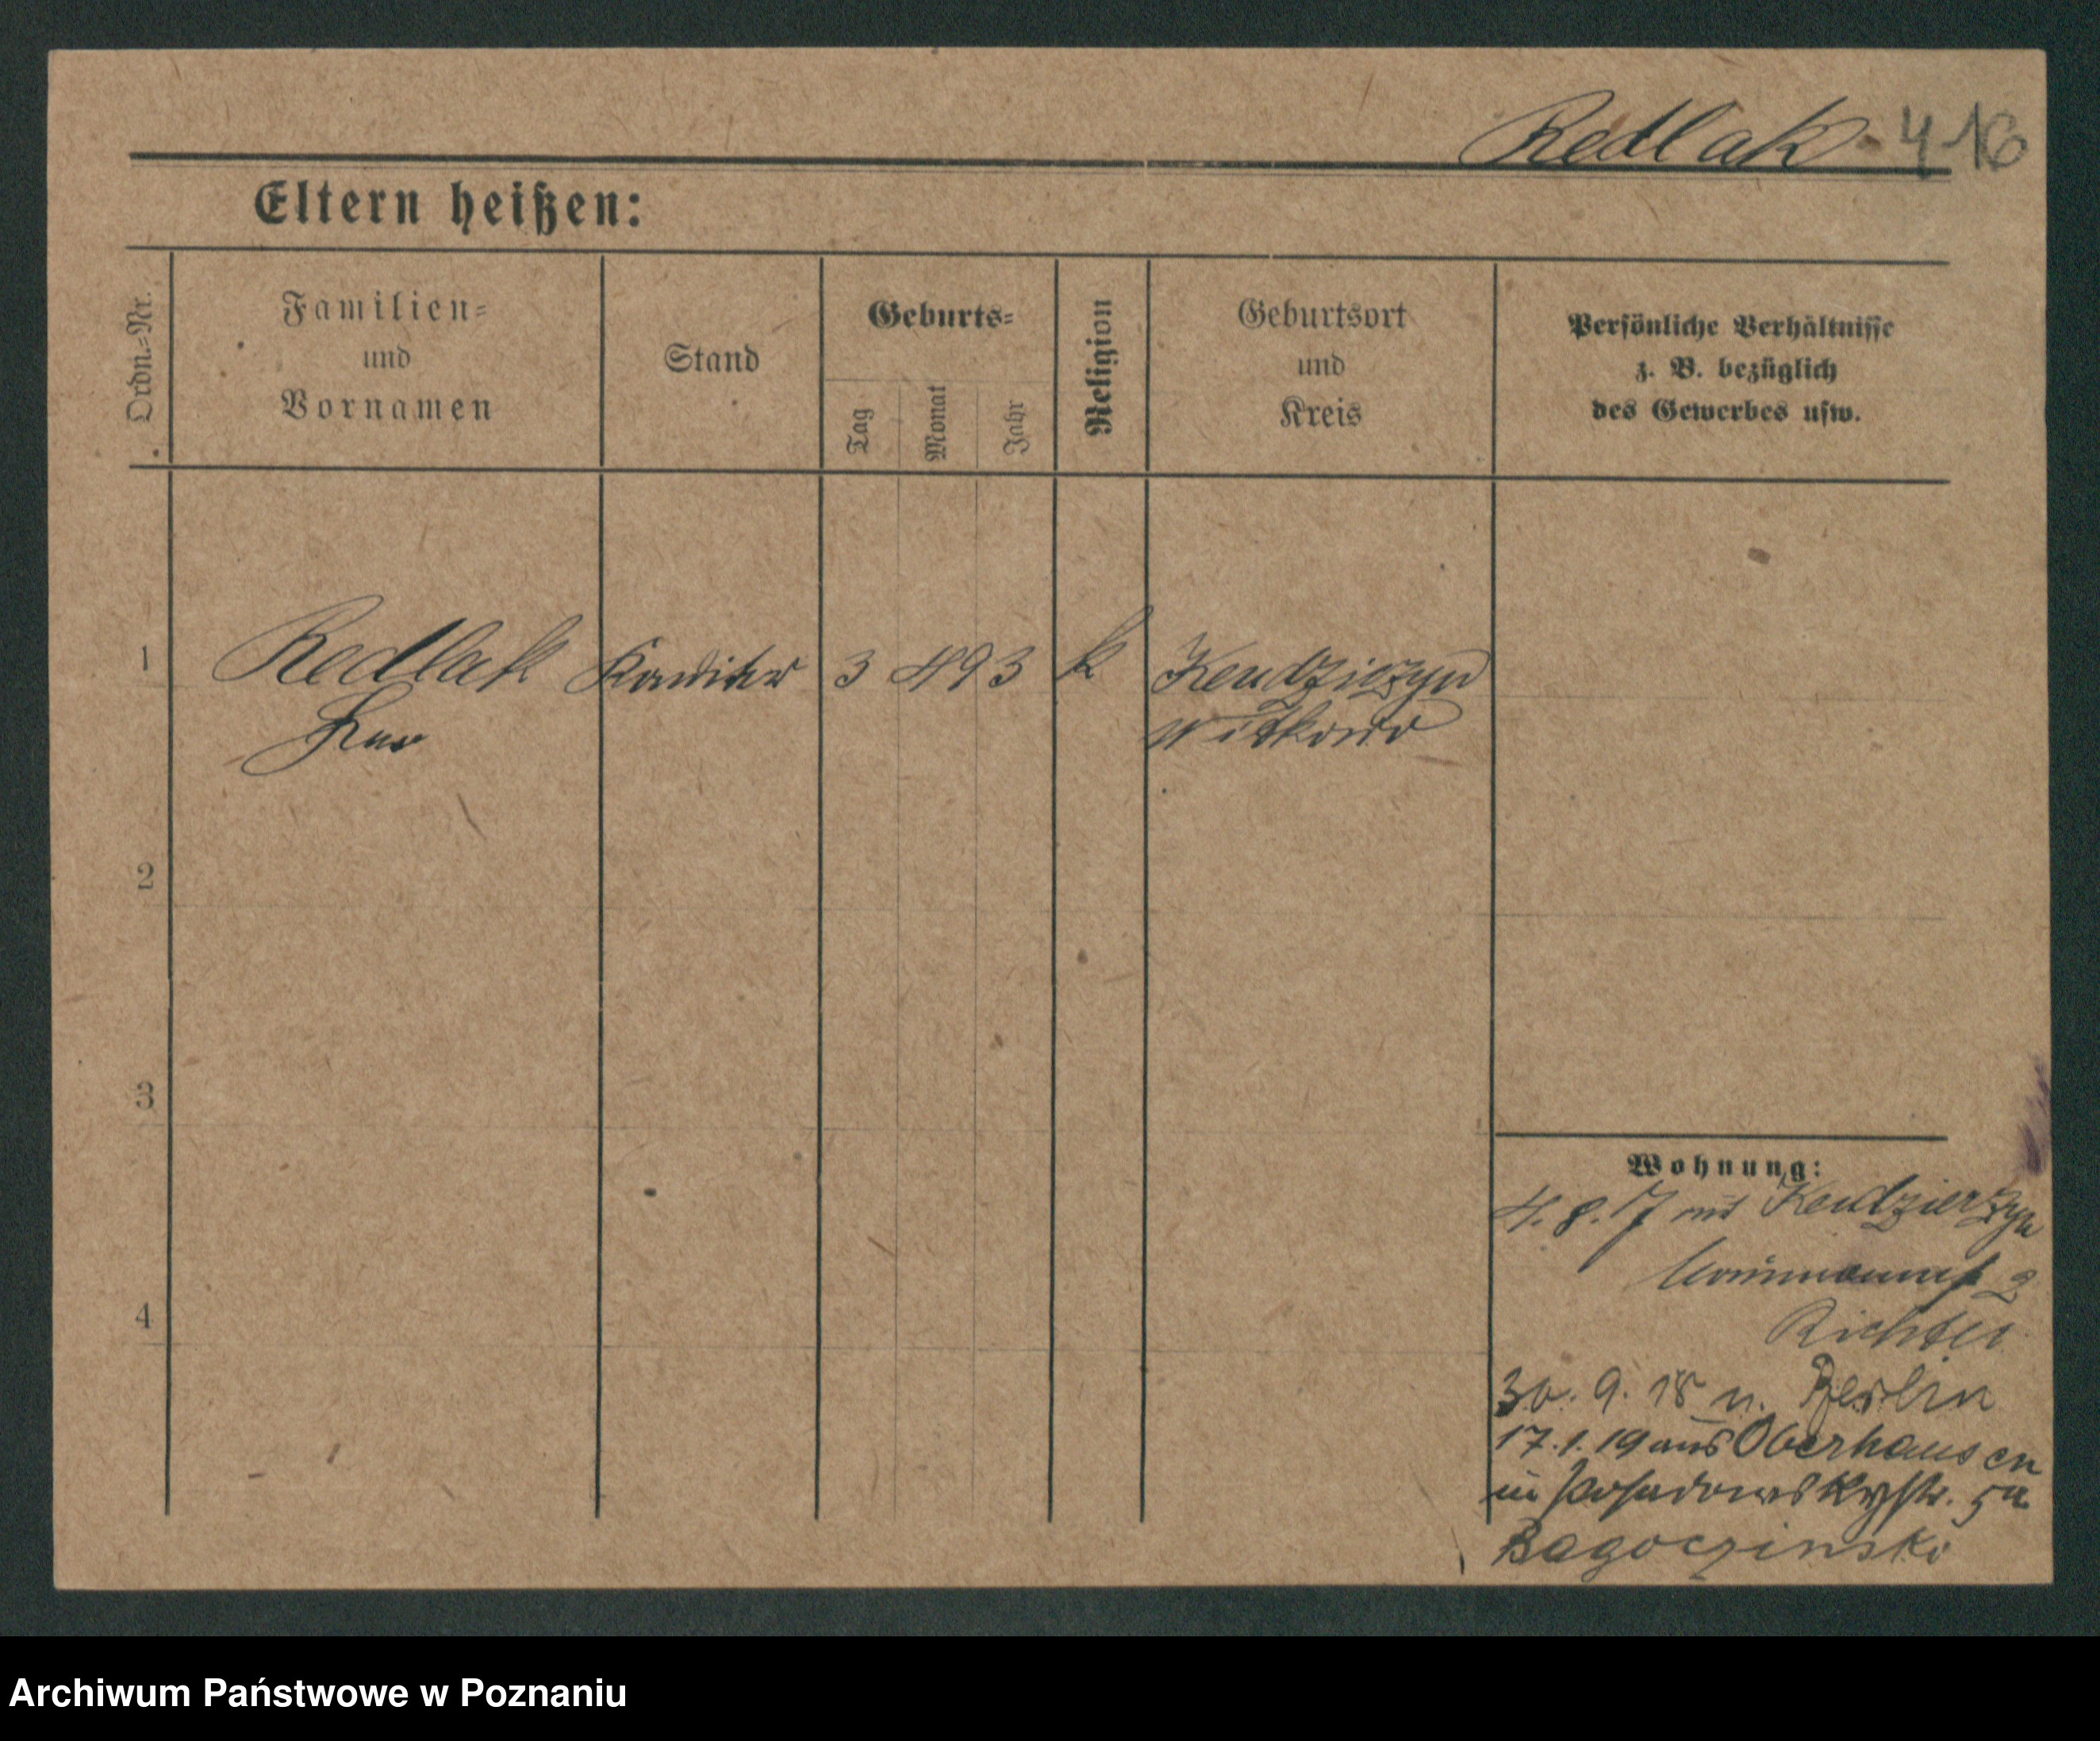 Redlak 416
Eltern heißen:
Ordn.-Nr.
Familien-
und
Vornamen
Stand
Geburts-
Tag
Monat
Jahr
Religion
Geburtsort
und
Kreis
Persönliche Verhältnisse
z. B. bezüglich
des Gewerbes usw.
1
Redlak Konditor 3 4 93 k Kendzierzyn
Leo
Witkowo
2
3
4
Wohnung:
4. 8. 17 aus Kendzierzyn
2
Richter
30. 9. 18 n. Berlin
17. 1. 19 aus Oberhausen
in Posadowskystr. 5a
Bagoczinski
Archiwum Państwowe w Poznaniu